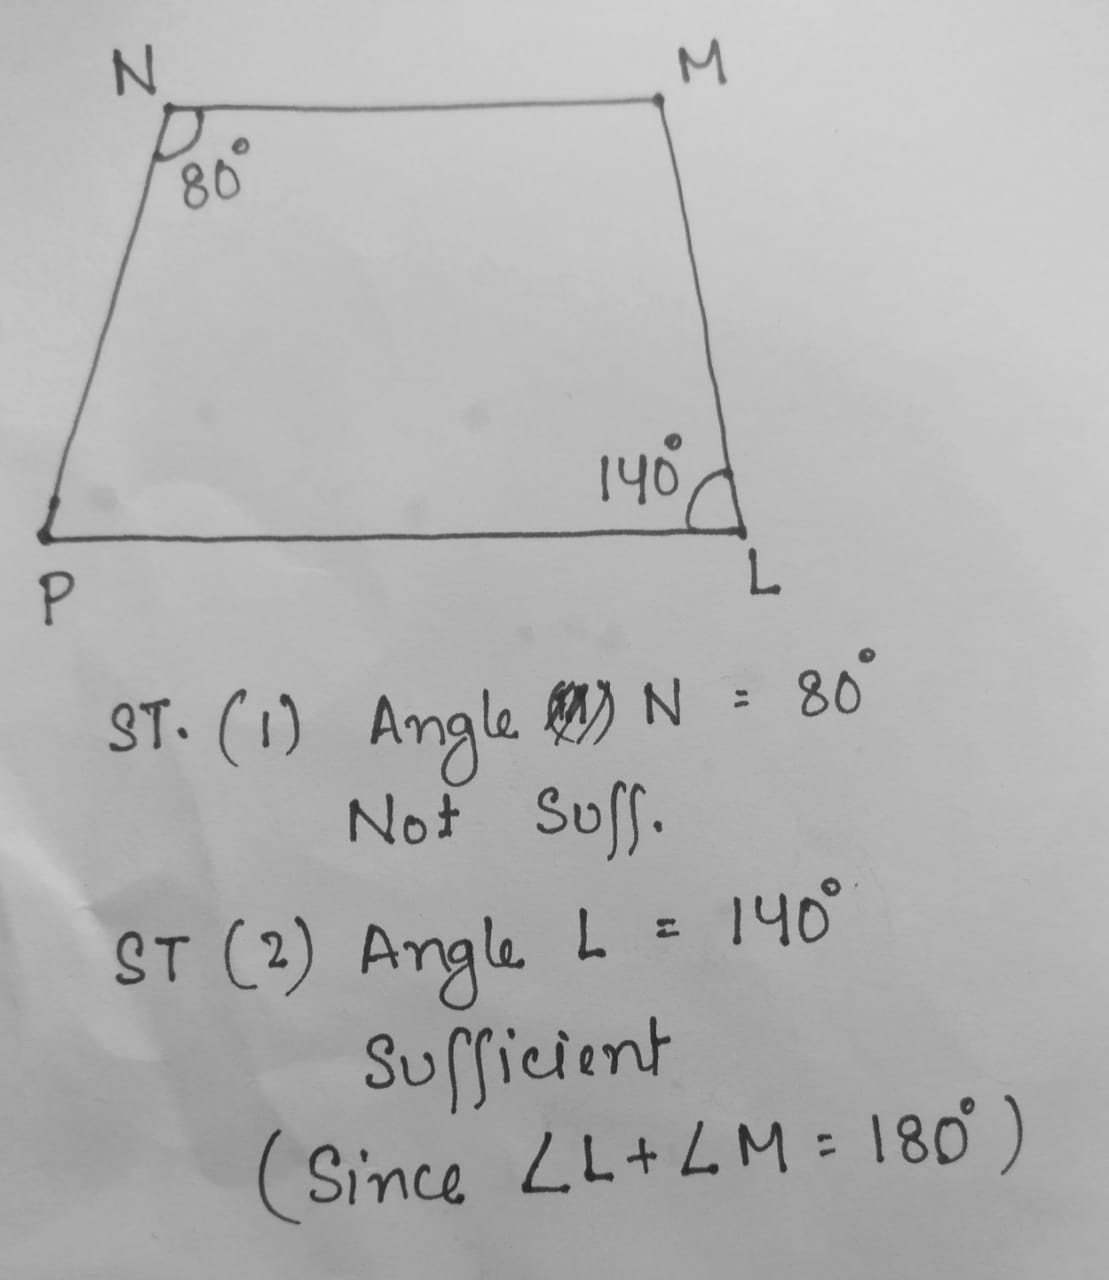 N
M
80°
140°
P
L
ST. (1) Angle N = 80°
Not Suff.
ST (2) Angle L = 140°
Sufficient
(Since ∠L + ∠M = 180°)